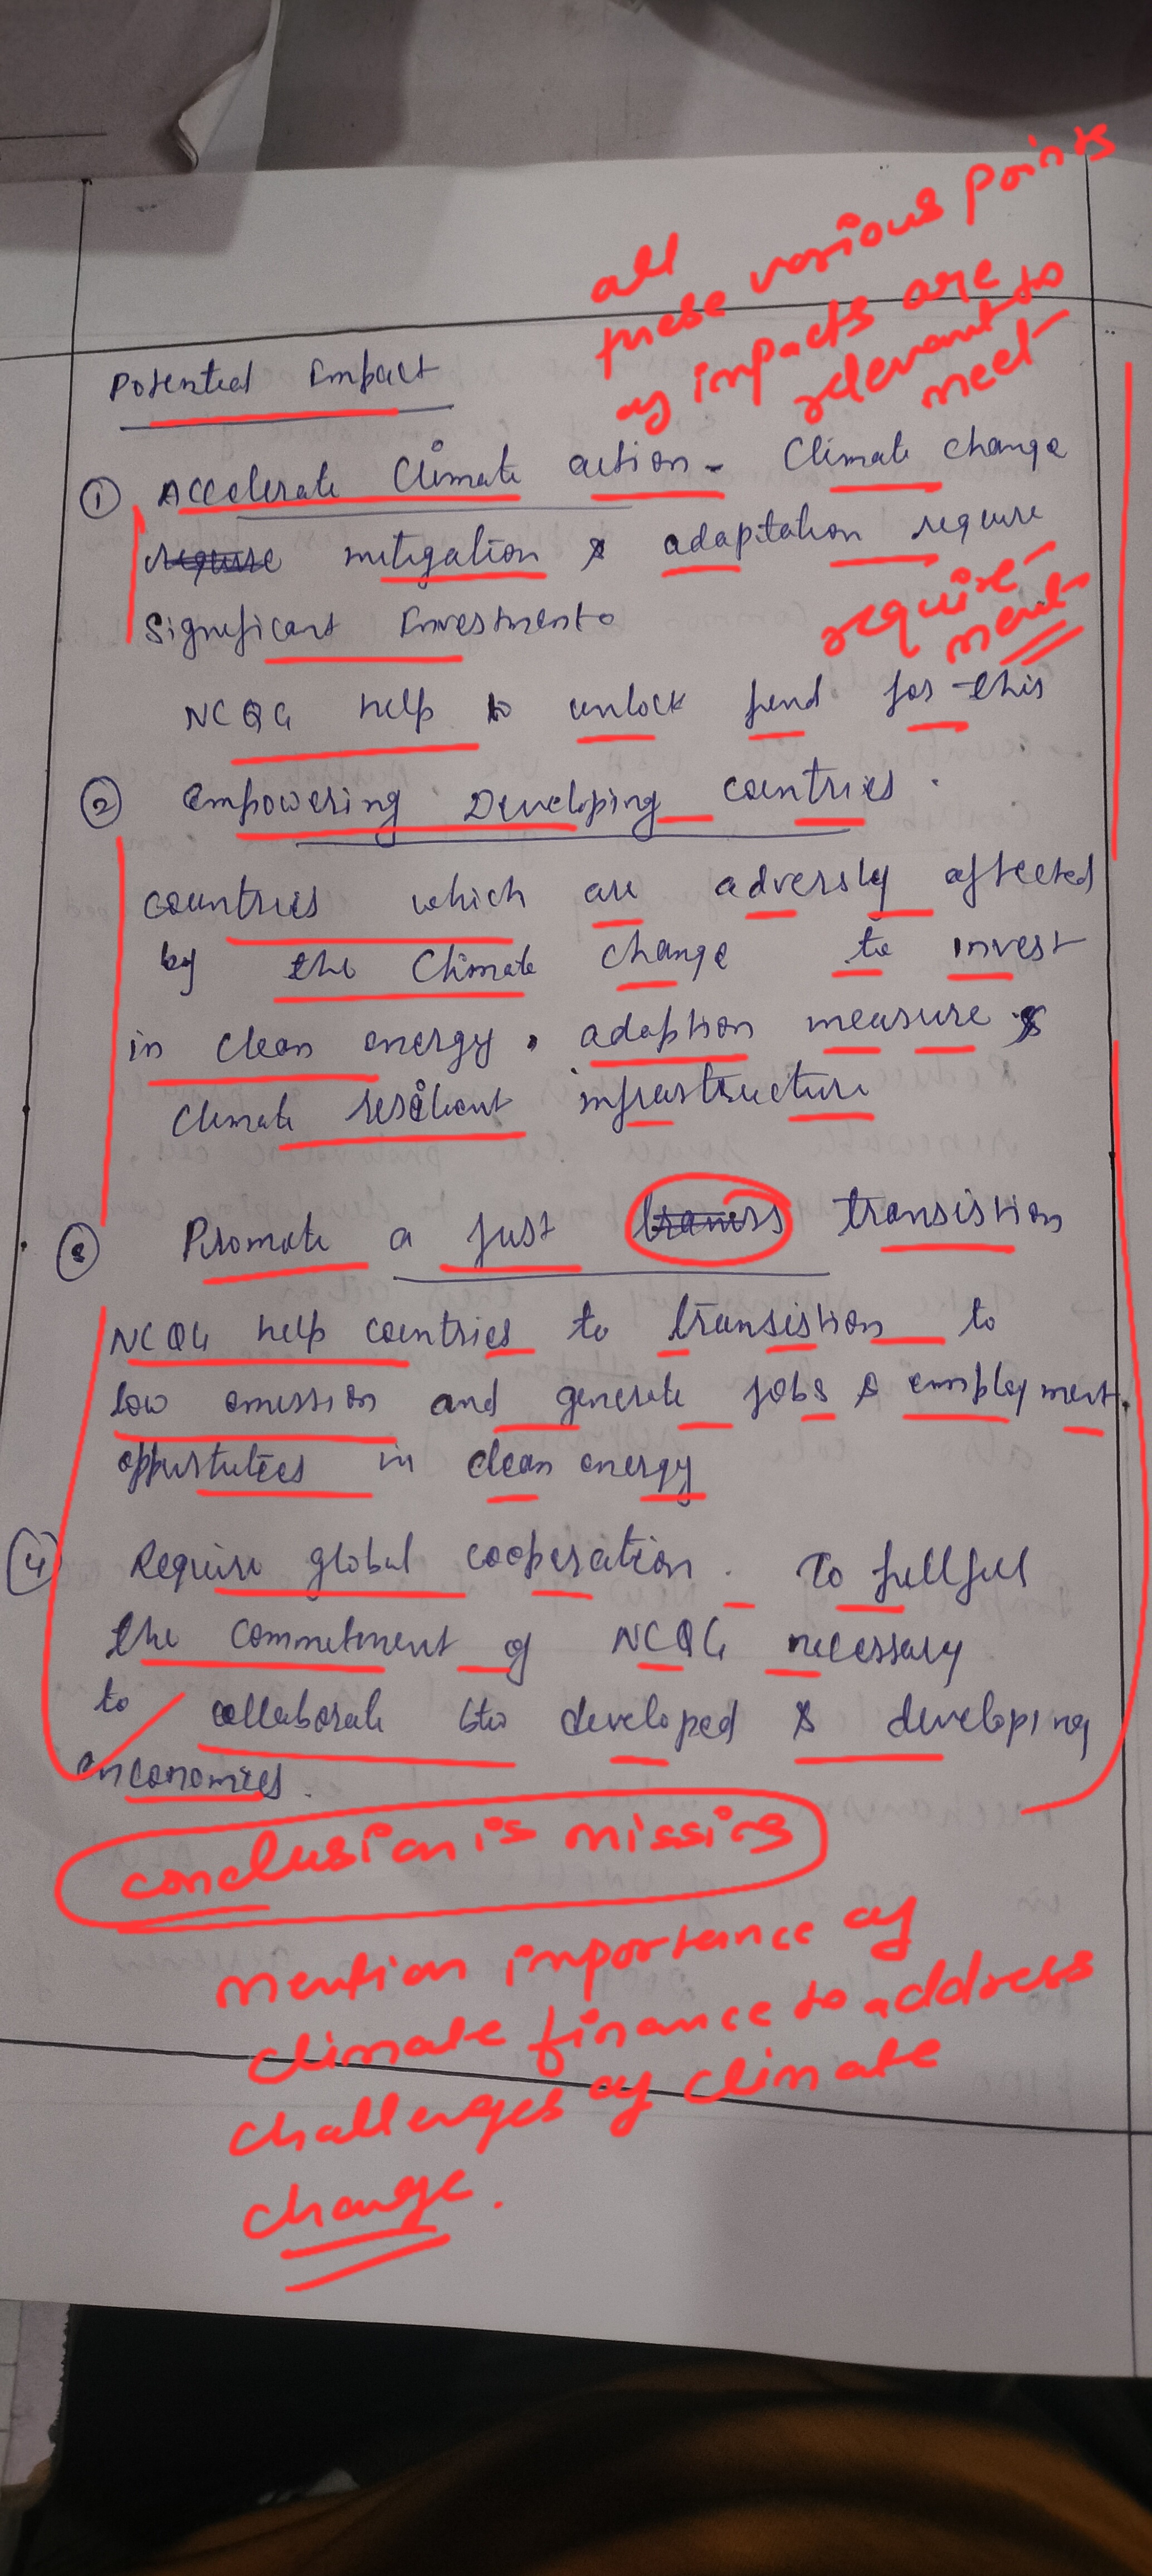 all
these various points
of impacts are
relevant to
meet
require-
ment
Potential Impact
① Accelerate Climate action - Climate change
require mitigation & adaptation require
Significant Investments
NCQG help to unlock fund for this
② empowering Developing countries.
countries which are adversly affected
by the Climate change to invest
in clean energy, adoption measure &
Climate resilient infrastructure
③ Promote a just transs transistion
NCQG help countries to transistion to
low emission and generate jobs & employment
opportuties in clean energy
④ Require global cooperation. To fullfill
the commitment of NCQG necessary
to collaborate btw developed & developing
enconomies.
conclusion is missing
mention importance of
climate finance to address
challenges of climate
change.